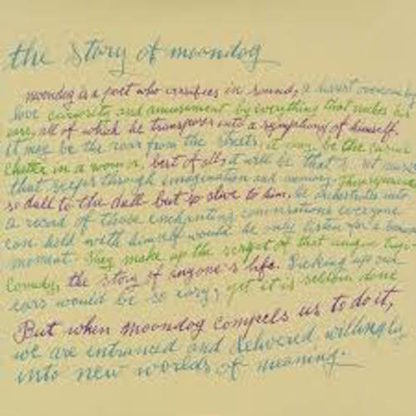 the story of moondog
moondog is a poet who versifies in sound, a
love curiosity and amusement by everything that makes his
ears, all of which he transposes into a symphony of himself.
It may be the roar from the streets, it may be the
chatter in a woman, best of all, it will be that
that seeps through imagination and memory.
so dull to the dull but so alive to him, he orchestrates into
a record of those enchanting conversations everyone
can hold with himself would he only listen for a
moment. They make up the script of that unique tragic
comedy, the story of anyone's life. Picking up our
ears would be so easy; yet it is seldom done
But when moondog compels us to do it,
we are entranced and delivered willingly
into new worlds of meaning.